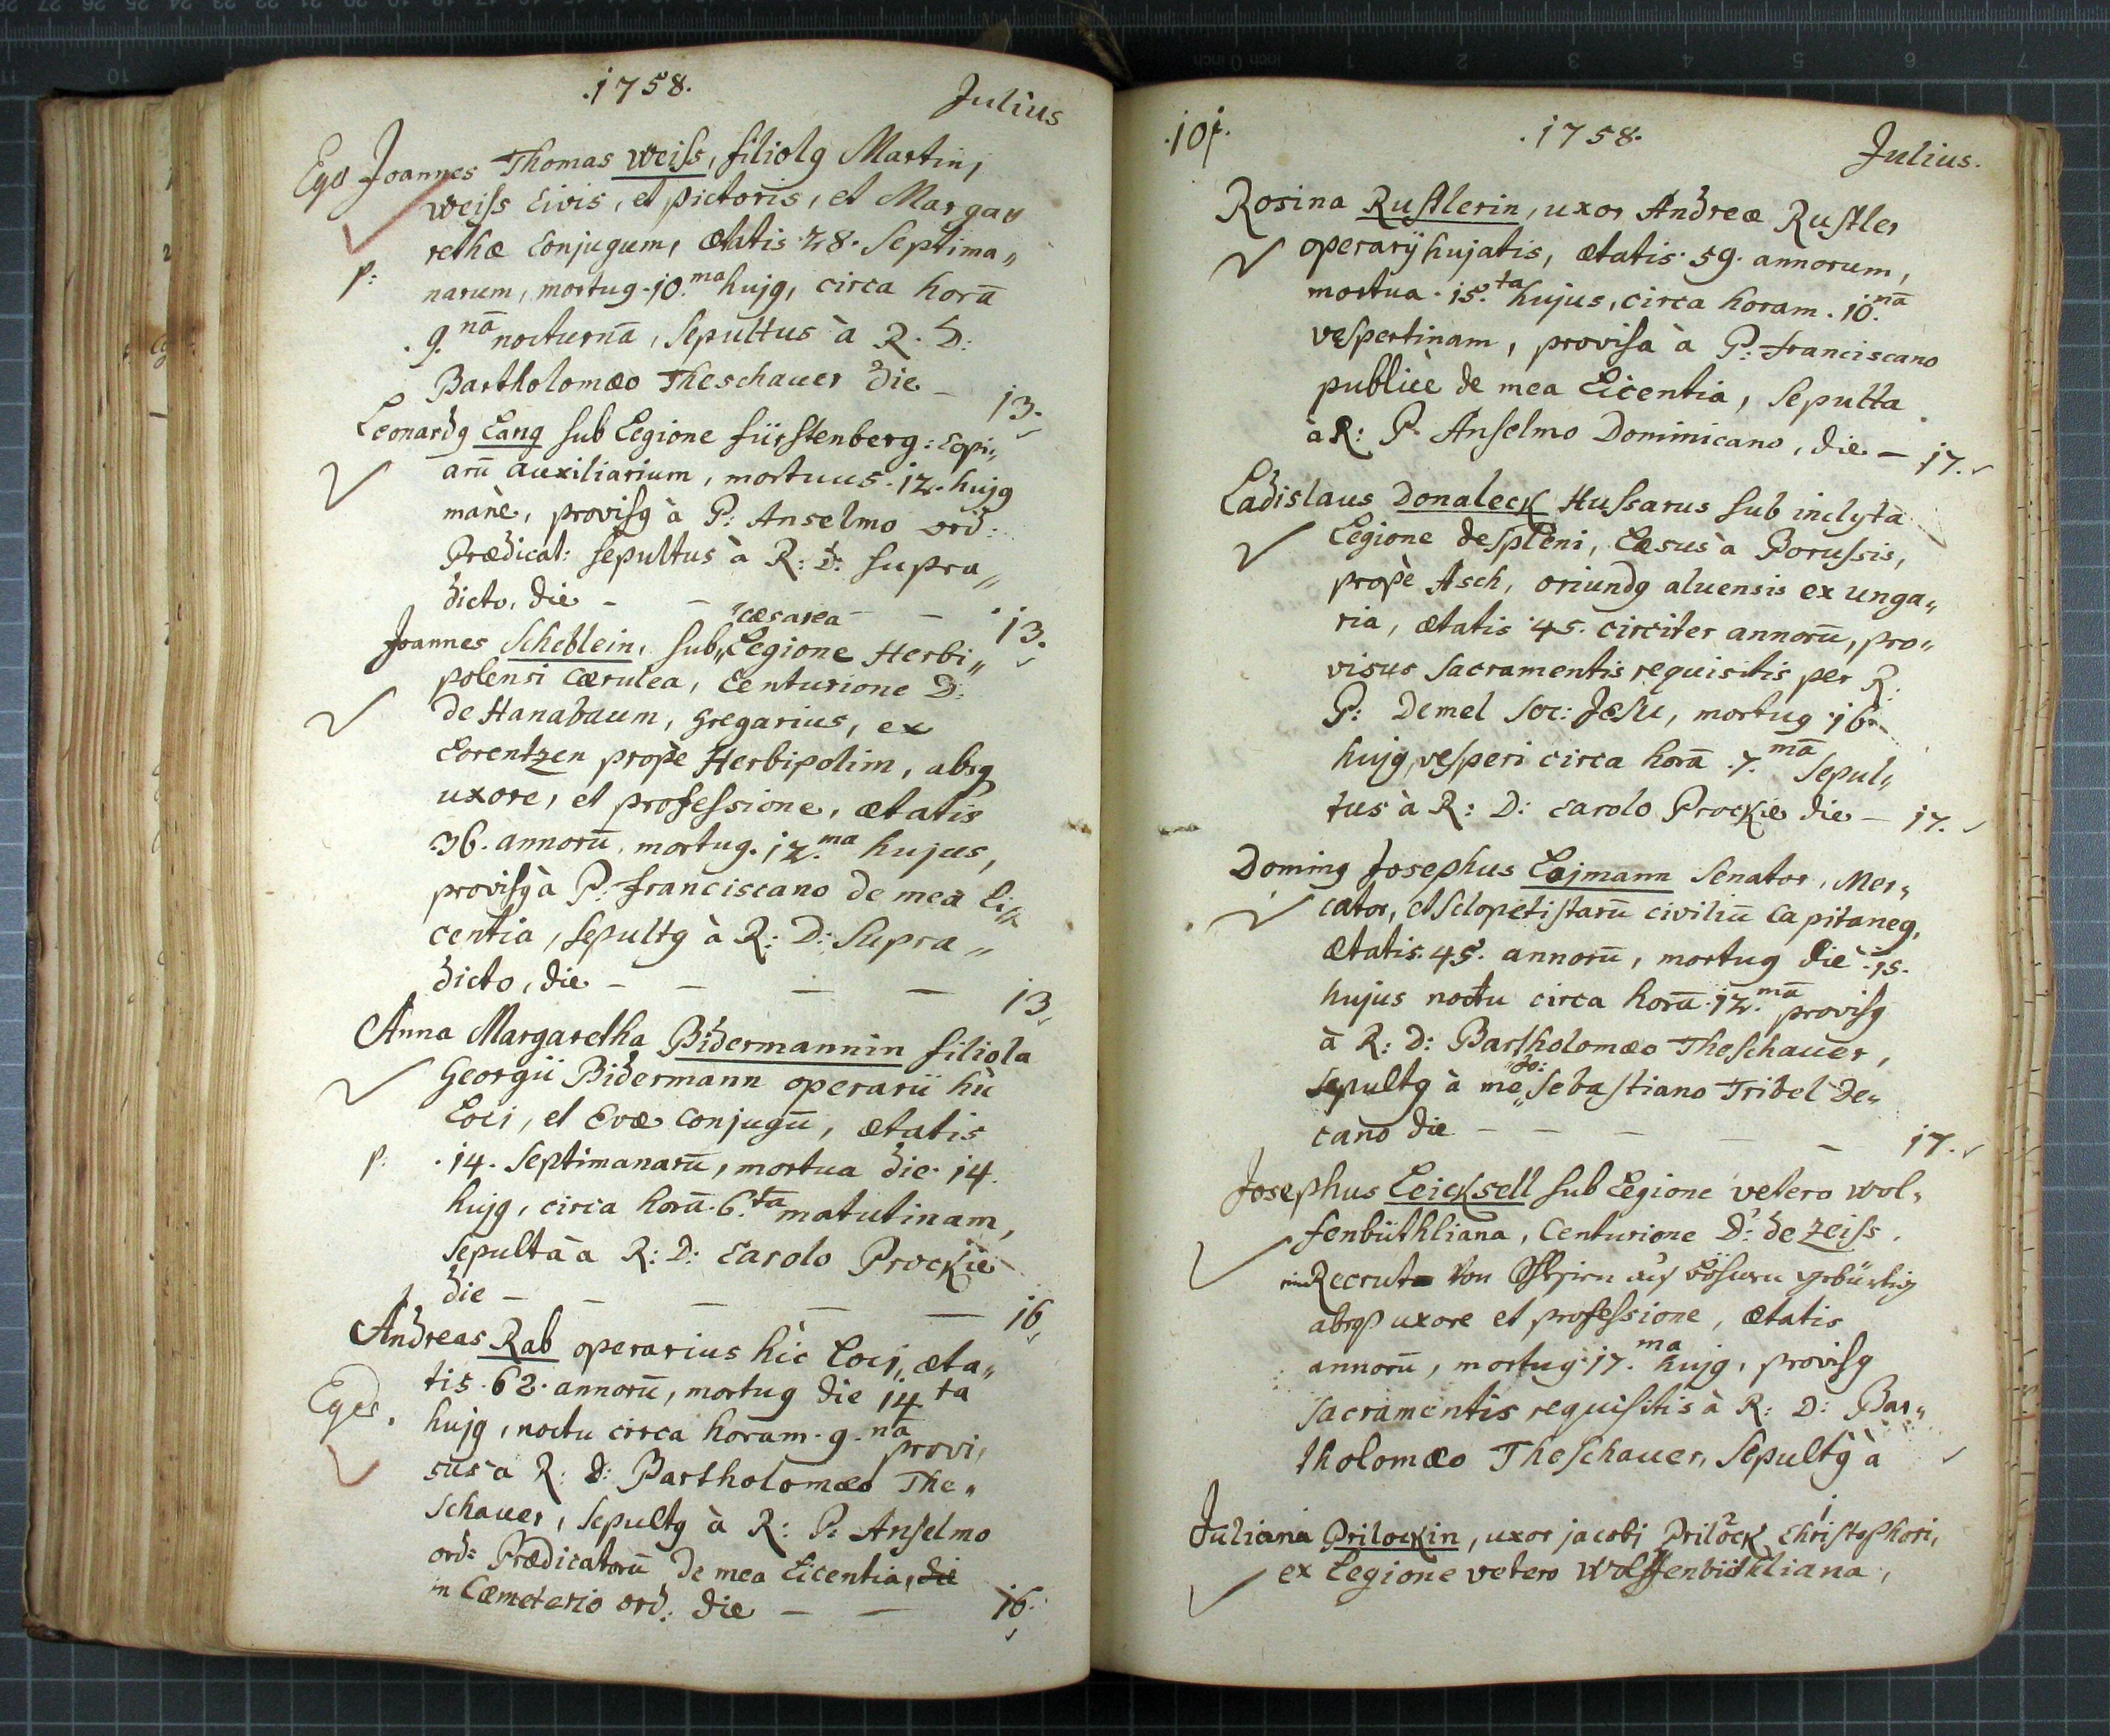 .1758.
Julius
Ego Joannes Thomas Weiss, filiolg Martini
Weiss Civis, et pictoris, et Marga„
rethæ Conjugum, ætatis 28. Septima„
p: narum, mortug .10.ma hujg, circa horā
.9.nā nocturnā, Sepultus à R. D:
Bartholomæo Theschauer die – 13.
Leonardg Lang sub Legione Fürstenberg: Copi„
arū auxiliarium, mortuus .12. hujg
mànè, provisg à P: Anselmo ord:
Prædicat: sepultus à R: D: supra„
dicto, die – – – – .13.
Cæsarea
Joannes Scheblein, sub„Legione Herbi„
polensi Cærulea, Centurione D:
de Hanabaum, gregarius, ex
Lorentzen propè Herbipolim, absq
uxore, et professione, ætatis
36. annorū, mortug .12.ma hujus,
provisg à P: Franciscano de mea Li„
centia, sepultg à R: D: Supra„
dicto, die – – – – 13
Anna Margaretha Bidermannin filiola
Georgii Bidermann operarii hù
Loci, et Evæ Conjugū, ætatis
p: .14. Septimanarū, mortua die 14.
hujg, circa horā .6.ta matutinam,
Sepulta à R: D: Carolo Prockie
die – – – – – 16
Andreas Rab operarius hìc Loci, æta„
tis .62. annorū, mortug die 14 ta
hujg, noctu circa horam .9.nā provi„
sus à R: D: Bartholomæo The„
schauer, Sepultg à R: P: Anselmo
ord: Prædicatorū de mea Licentia, die
in Cæmeterio ord: die – – 16.
.101.
.1758.
Julius.
Rosina Rustlerin, uxor Andreæ Rustler
operarÿ hujatis, ætatis 59. annorum,
mortua .15.ta hujus, circa horam .10.nā
vespertinam, provisa à P: Franciscano
publicè de mea Licentia, Sepulta
à R: P. Anselmo Dominicano, die – 17.
Ladislaus Donaleck Hussarus sub inclyta
Legione despleni, Cæsus à Borussis,
propè Asch, oriundg aluensis ex unga„
ria, ætatis 45. circiter annorū, pro„
visus Sacramentis requisitis per R:
P: Demel Soc: Jesu, mortug 16
hujg, vesperi circa horā .7.mā Sepul„
tus à R: D: Carolo Prockie die – 17.
Doming Josephus Lojmann Senator, Mer„
cator, et Sclopetistarū civiliū Capitaneg,
ætatis 45. annorū, mortug die .15.
hujus noctu circa horā .12.mā provisg
à R: D: Bartholomæo Theschauer,
Jo:
Sepultg à me„Sebastiano Tribel De„
cano die – – – – – 17.
Josephus Leicksell sub Legione vetero Wol„
fenbüthliana, Centurione D: de Zeiss.
ein Recrut von aus gebürtig
absq uxore et professione, ætatis
annorū, mortug .17.ma hujg, provisg
Sacramentis requisitis à R: D: Bar„
tholomæo Theschauer, Sepultg à
Juliana Prilockin, uxor jacobi Prilock Christophori,
ex Legione vetero Wolffenbüthliana,
Ego.